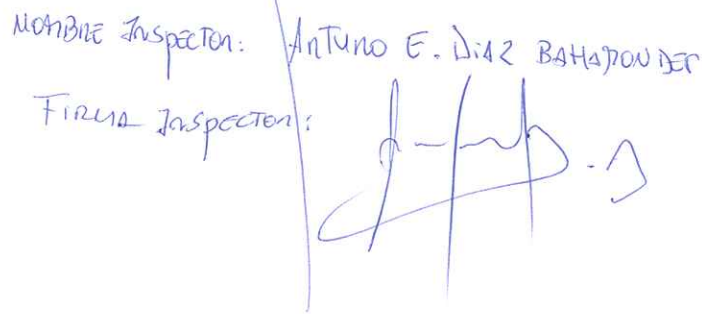 NOMBRE INSPECTOR: ARTURO E. DIAZ BAHAMONDES
FIRMA INSPECTOR: